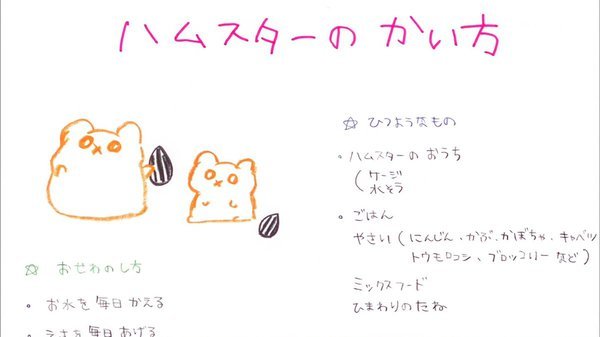 ハムスターの かい方
☆ ひつようなもの
・ハムスターの おうち
(ケージ
水そう
・ごはん
やさい(にんじん、かぶ、かぼちゃ、キャベツ
トウモロコシ、ブロッコリー など)
ミックスフード
ひまわりのたね
☆ おせわのし方
・お水を毎日かえる
・えさを毎日あげる